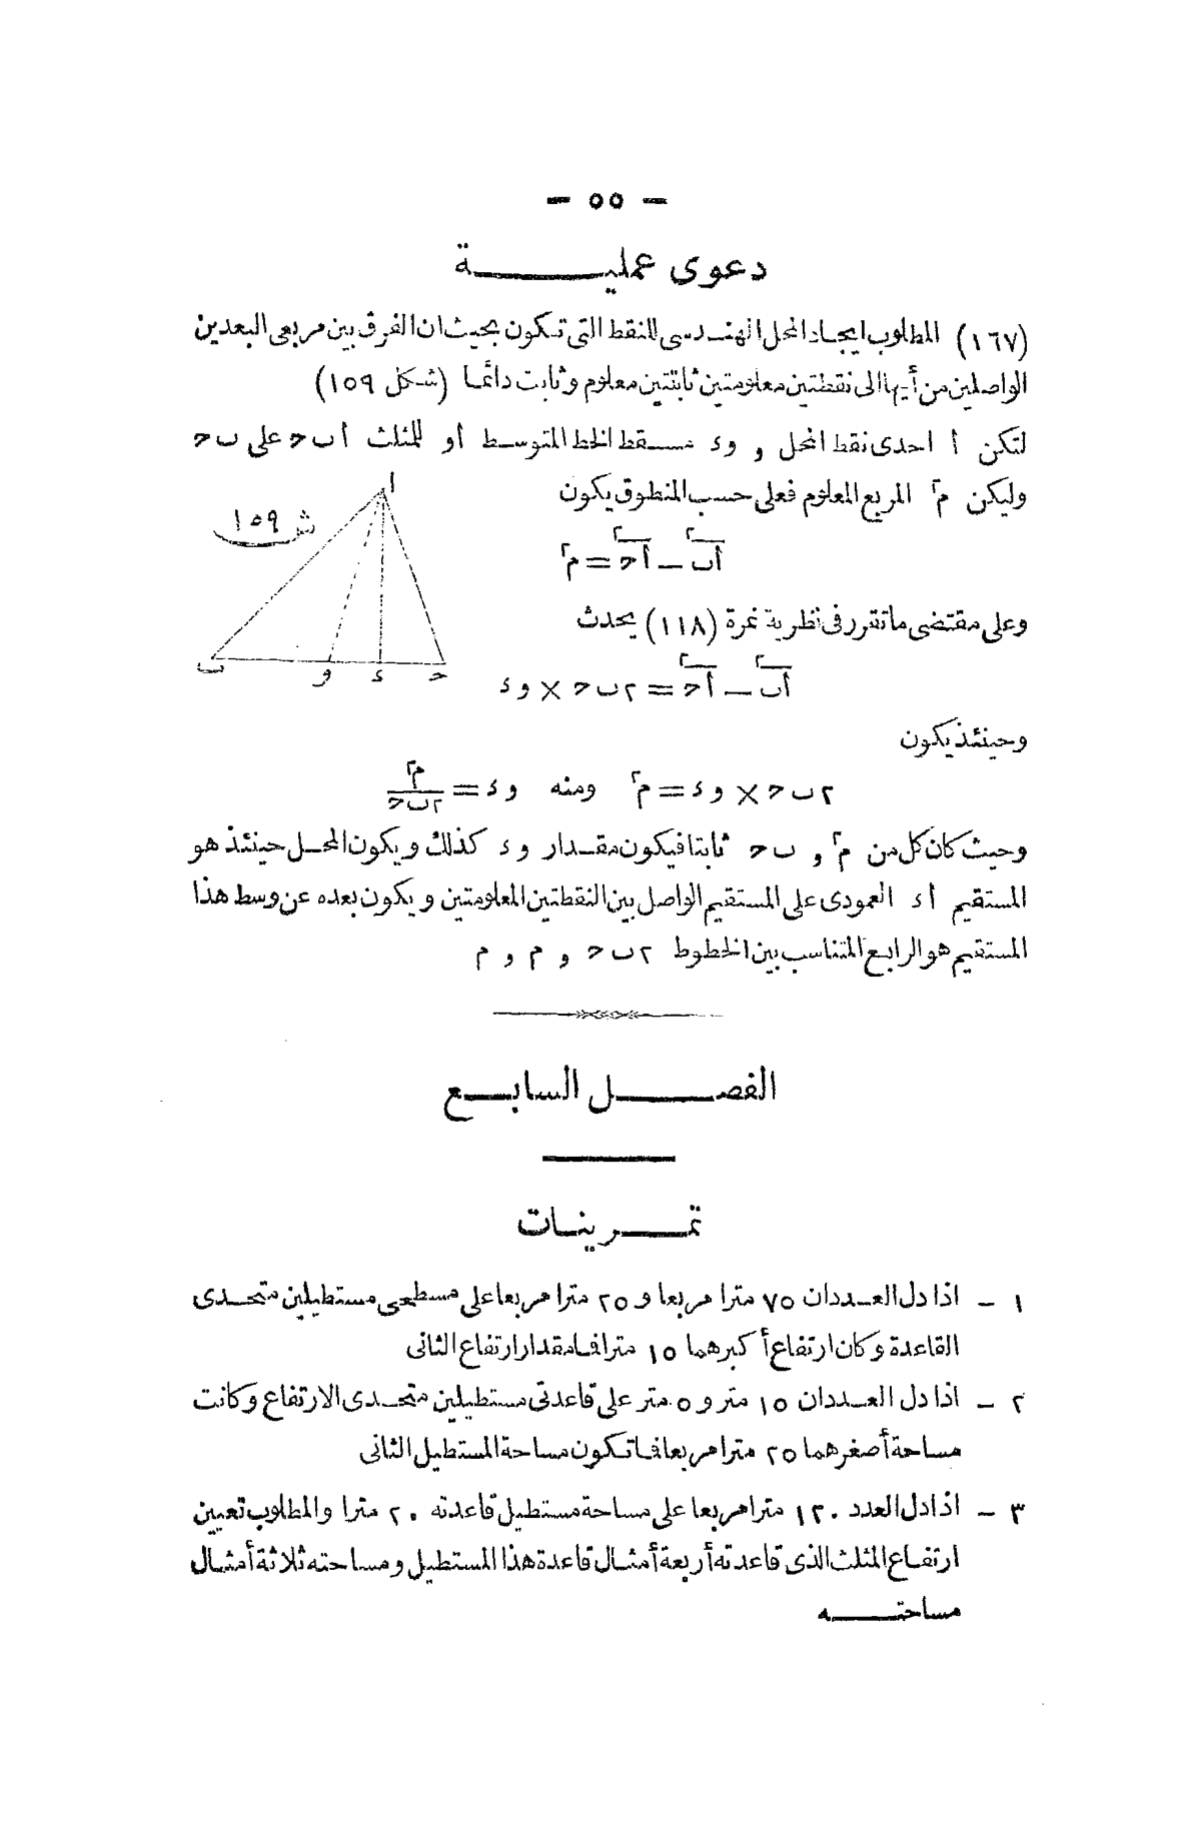 — ٥٥ —
دعوى عملية
(١٦٧) المطلوب ايجاد المحل الهندسى للنقط التى تكون بحيث ان الفرق بين مربعى البعدين
الواصلين من أيها الى نقطتين معلومتين ثابتتين معلوم وثابت دائما (شكل ١٥٩)
لتكن أ احدى نقط المحل و وء مسقط الخط المتوسط أو للمثلث أبح على بح
وليكن م٢ المربع المعلوم فعلى حسب المنطوق يكون
أب٢ — أح٢ = م٢
وعلى مقتضى ما تقرر فى نظرية نمرة (١١٨) يحدث
أب٢ — أح٢ = ٢بح × وء
وحينئذ يكون
٢بح × وء = م٢ ومنه وء = م٢/٢بح
وحيث كان كل من م٢ و بح ثابتا فيكون مقدار وء كذلك ويكون المحل حينئذ هو
المستقيم أء العمودى على المستقيم الواصل بين النقطتين المعلومتين ويكون بعده عن وسط هذا
المستقيم هو الرابع المتناسب بين الخطوط ٢بح و م و م
ش ١٥٩
ا
ب و ء ح
الفصل السابع
تمرينات
١ — اذا دل العددان ٧٥ مترا مربعا و ٢٥ مترا مربعا على مسطحى مستطيلين متحدى
القاعدة وكان ارتفاع أكبرهما ١٥ مترا فما مقدار ارتفاع الثانى
٢ — اذا دل العددان ١٥ متر و ٥ متر على قاعدتى مستطيلين متحدى الارتفاع وكانت
مساحة أصغرهما ٢٥ مترا مربعا فما تكون مساحة المستطيل الثانى
٣ — اذا دل العدد ١٢٠ مترا مربعا على مساحة مستطيل قاعدته ٢٠ مترا والمطلوب تعيين
ارتفاع المثلث الذى قاعدته أربعة أمثال قاعدة هذا المستطيل ومساحته ثلاثة أمثال
مساحته